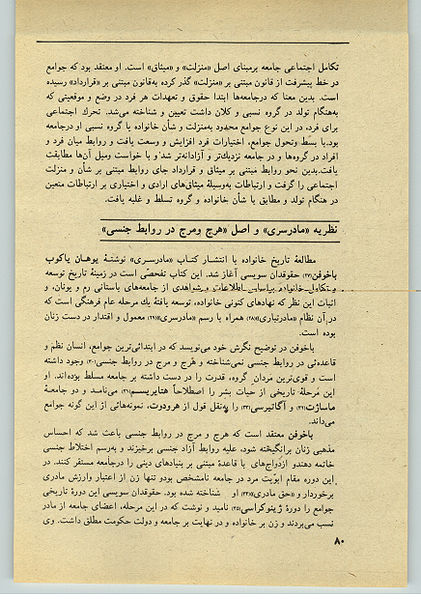 تکامل اجتماعی جامعه برمبنای اصل «منزلت» و «میثاق» است. او معتقد بود که جوامع
در خط پیشرفت از قانون مبتنی بر «منزلت» گذر کرده به‌قانون مبتنی بر «قرارداد» رسیده
است. بدین معنا که درجامعه‌ها ابتدا حقوق و تعهدات هر فرد در وضع و موقعیتی که
به‌هنگام تولد در گروه نسبی و کلان داشت تعیین و شناخته می‌شد. تحرك اجتماعی
برای فرد، در این نوع جوامع محدود به‌منزلت و شأن خانواده یا گروه نسبی او درجامعه
بود. با بسط و تحول جوامع، اختیارات فرد افزایش و وسعت یافت و روابط میان فرد و
افراد در گروه‌ها و در جامعه نزدیك‌تر و آزادانه‌تر شد و با خواست ومیل آن‌ها مطابقت
یافت. بدین نحو روابط مبتنی بر میثاق و قرارداد جای روابط مبتنی بر شأن و منزلت
اجتماعی را گرفت و ارتباطات به‌وسیلهٔ میثاق‌های ارادی و اختیاری بر ارتباطات متعین
در هنگام تولد و مطابق با شأن خانواده و گروه تسلط و غلبه یافت.
نظریه «مادرسری» و اصل «هرج ومرج در روابط جنسی»
مطالعهٔ تاریخ خانواده با انتشار کتاب «مادرسری» نوشتهٔ یوهان یاکوب
باخوفن(۲۷) حقوقدان سویسی آغاز شد. این کتاب تفحصی است در زمینهٔ تاریخ توسعه
و تکامل خانواده براساس اطلاعات و شواهدی از جامعه‌های باستانی رم و یونان، و
اثبات این نظر که نهادهای کنونی خانواده، توسعه یافتهٔ یك مرحله عام فرهنگی است که
در آن نظام «مادرتباری»(۲۸) همراه با رسم «مادرسری»(۲۹) معمول و اقتدار در دست زنان
بوده است.
باخوفن در توضیح نگرش خود می‌نویسد که در ابتدائی‌ترین جوامع، انسان نظم و
قاعده‌ئی در روابط جنسی نمی‌شناخته و هرج و مرج در روابط جنسی(۳۰) وجود داشته
است و قوی‌ترین مردان گروه، قدرت را در دست داشته بر جامعه مسلط بوده‌اند. او
این مرحلهٔ تاریخی از حیات بشر را اصطلاحاً هتایریسم(۳۱) می‌نامد و دو جامعهٔ
ماساژت(۳۲) و آگاتیرسی(۳۳) را به‌نقل قول از هرودوت، نمونه‌هائی از این گونه جوامع
می‌داند.
باخوفن معتقد است که هرج و مرج در روابط جنسی باعث شد که احساس
مذهبی زنان برانگیخته شود، علیه روابط آزاد جنسی برخیزند و به‌رسم اختلاط جنسی
خاتمه دهند و ازدواج‌های با قاعدهٔ مبتنی بر بنیادهای دینی را درجامعه مستقر کنند. در
این دوره مقام ابوّیت مرد در جامعه نامشخص بود و تنها زن از اعتبار وارزش مادری
برخوردار و «حق مادری»(۳۴) او شناخته شده بود. حقوقدان سویسی این دورهٔ تاریخی
جوامع را دورهٔ ژینوکراسی(۳۵) نامید و نوشت که در این مرحله، اعضای جامعه از مادر
نسب می‌بردند و زن بر خانواده و در نهایت بر جامعه و دولت حکومت مطلق داشت. وی
۸۰